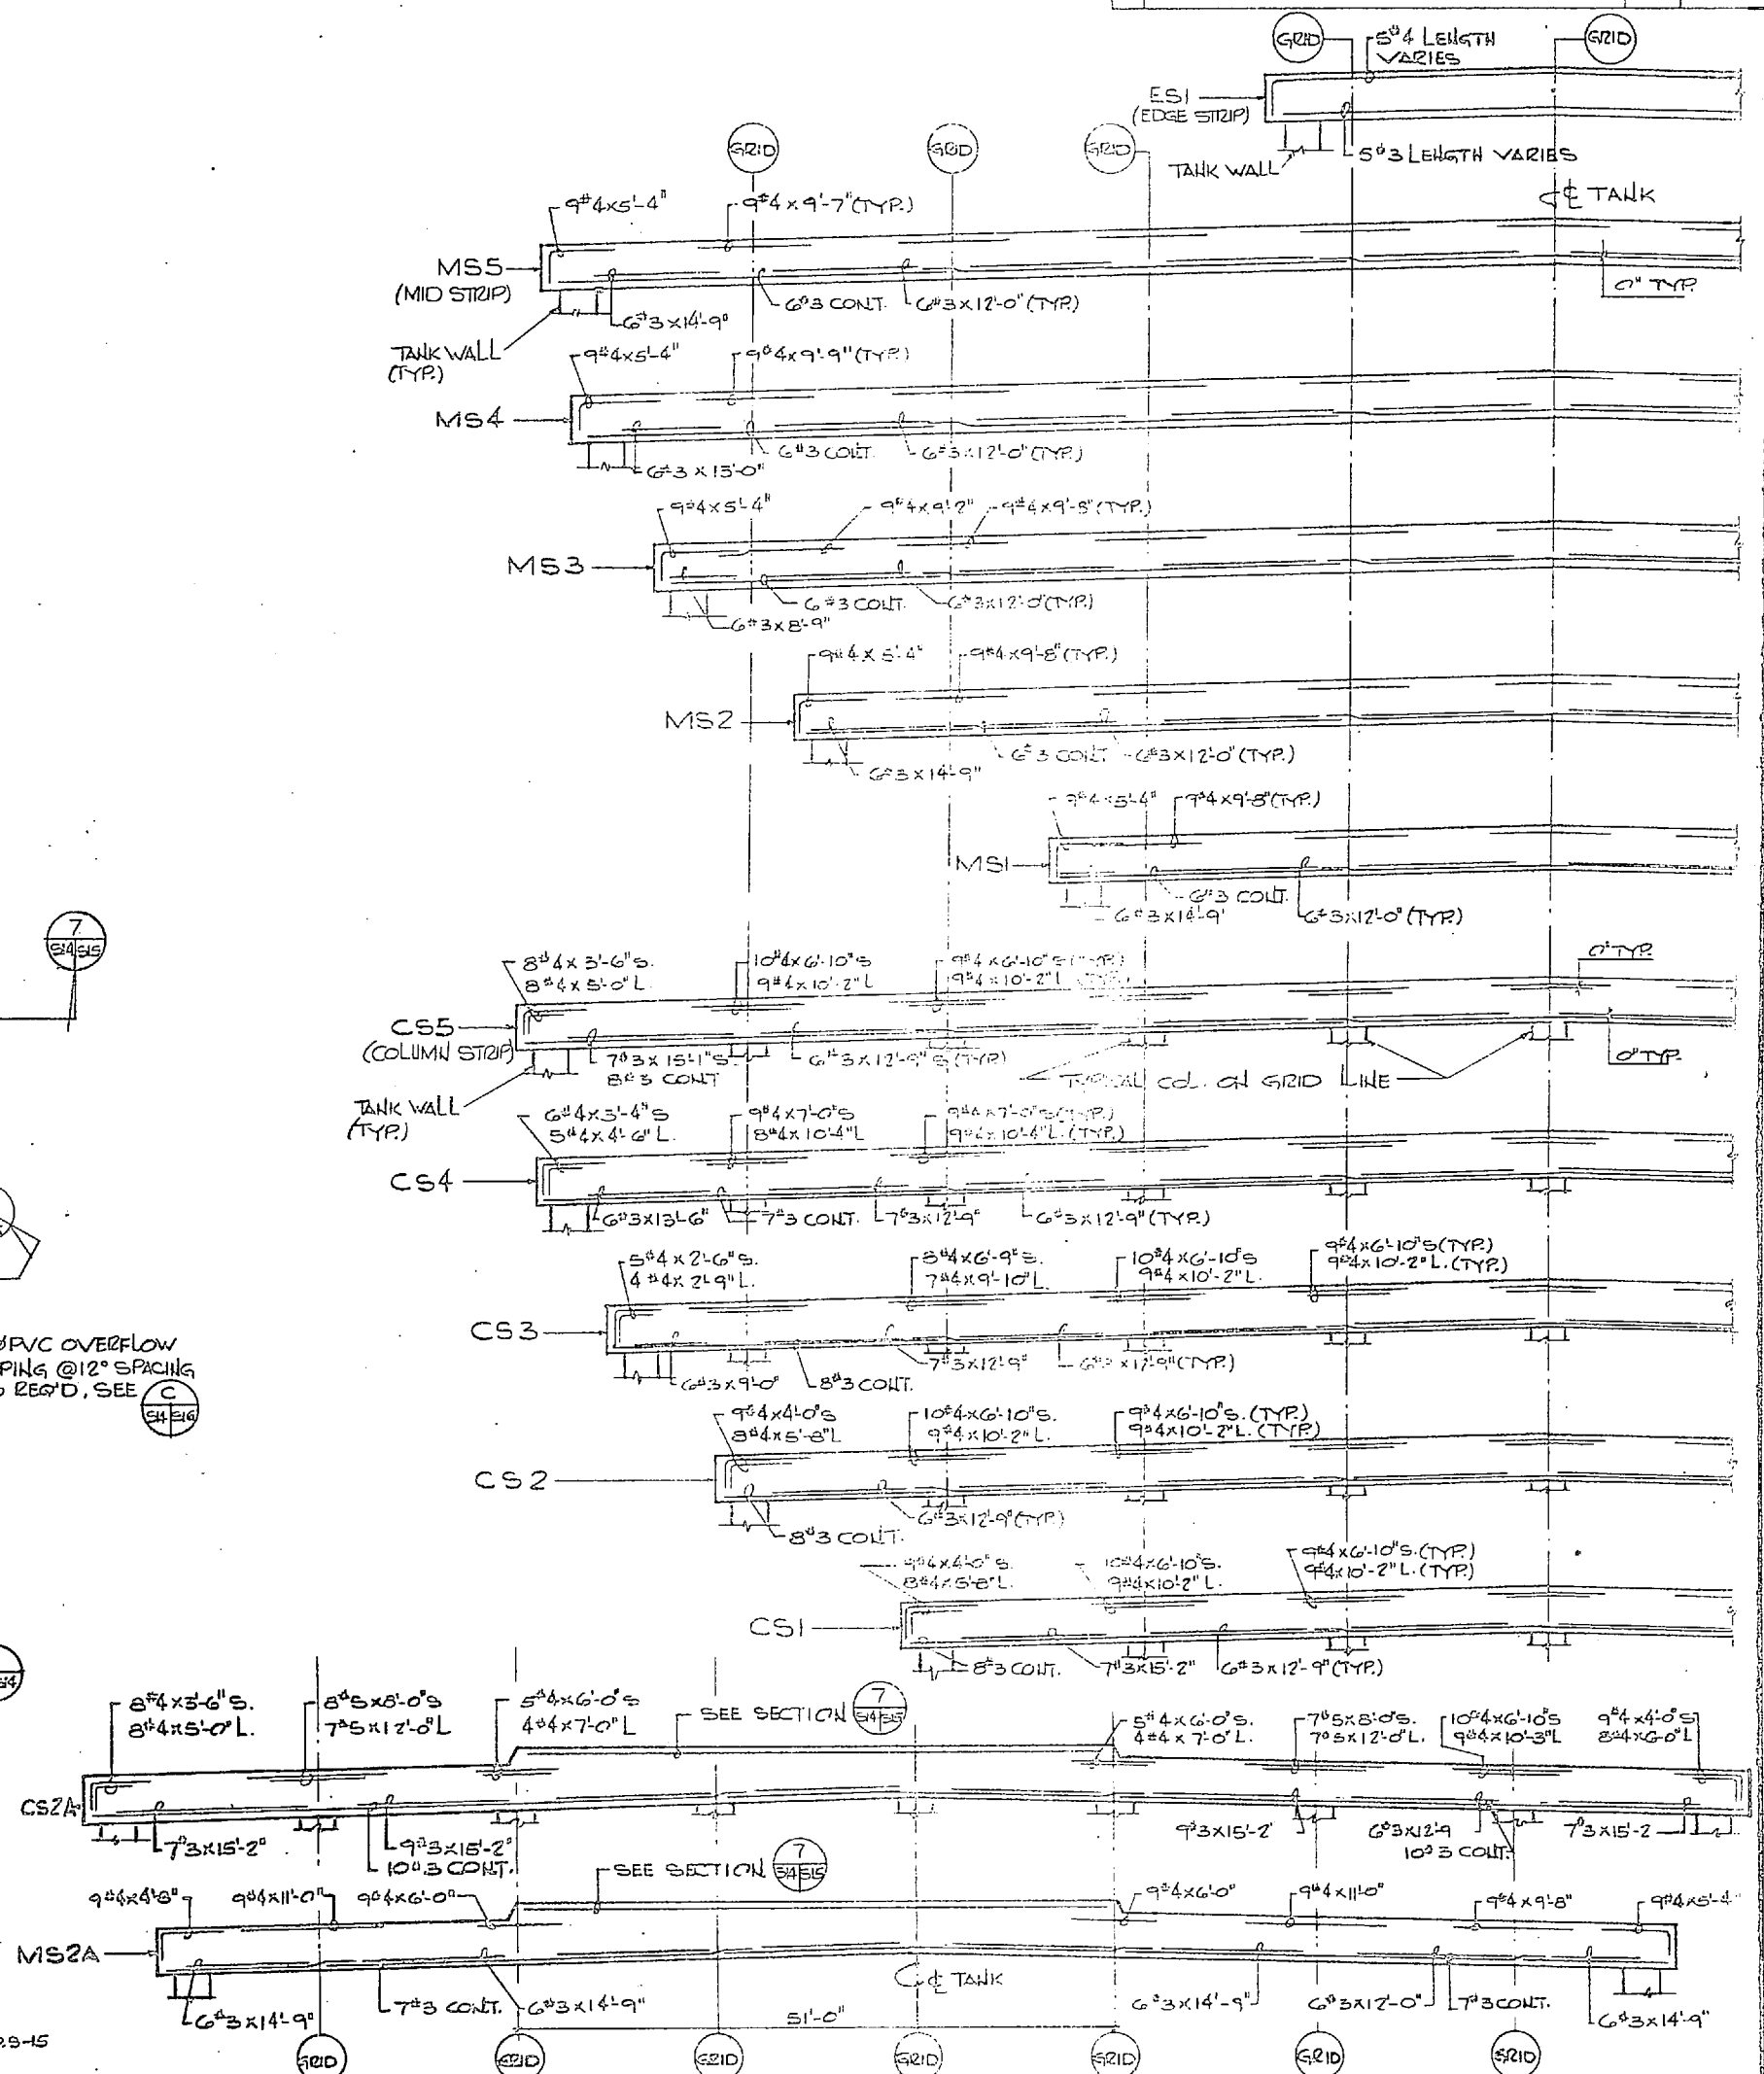 GRID
5#4 LENGTH
VARIES
GRID
ES1
(EDGE STRIP)
TANK WALL
5#3 LENGTH VARIES
GRID
GRID
GRID
℄ TANK
9#4x5'-4"
9#4x9'-7"(TYP.)
MS5
(MID STRIP)
6#3 CONT.
6#3x12'-0"(TYP.)
0" TYP.
6#3x14'-9"
TANK WALL
(TYP.)
9#4x5'-4"
9#4x9'-9"(TYP.)
MS4
6#3 CONT.
6#3x12'-0"(TYP.)
6#3x13'-0"
9#4x5'-4"
9#4x9'-2"
9#4x9'-8"(TYP.)
MS3
6#3 CONT.
6#3x12'-0"(TYP.)
6#3x8'-9"
9#4x5'-4"
9#4x9'-8"(TYP.)
MS2
6#3 CONT
6#3x12'-0"(TYP.)
6#3x14'-9"
9#4x5'-4"
9#4x9'-8"(TYP.)
MS1
6#3 CONT.
6#3x14'-9'
6#3x12'-0"(TYP.)
7
S14 S15
8#4x3'-6"S.
8#4x5'-0"L.
10#4x6'-10"S
9#4x10'-2"L
9#4x6'-10"S(TYP.)
9#4x10'-2"L (TYP.)
0" TYP.
CS5
(COLUMN STRIP)
7#3x15'-1"S
8#3 CONT
6#3x12'-9"S(TYP.)
0" TYP.
TYPICAL COL. ON GRID LINE
TANK WALL
(TYP.)
6#4x3'-4"S
5#4x4'-6"L.
9#4x7'-0"S
8#4x10'-4"L
9#4x7'-0"S(TYP.)
9#4x10'-4"L.(TYP.)
CS4
6#3x13'-6"
7#3 CONT.
7#3x12'-9"
6#3x12'-9"(TYP.)
5#4x2'-6"S.
4#4x2'-9"L.
8#4x6'-9"S.
7#4x9'-10"L.
10#4x6'-10"S
9#4x10'-2"L.
9#4x6'-10"S(TYP.)
9#4x10'-2"L.(TYP.)
CS3
6#3x9'-0"
8#3 CONT.
7#3x12'-9"
6#3x12'-9"(TYP.)
PVC OVERFLOW
PING @12° SPACING
REQ'D, SEE
C
S14 S16
9#4x4'-0"S
8#4x5'-8"L
10#4x6'-10"S.
9#4x10'-2"L.
9#4x6'-10"S.(TYP.)
9#4x10'-2"L.(TYP.)
CS2
8#3 CONT.
6#3x12'-9"(TYP.)
9#4x4'-0"S.
8#4x5'-8"L.
10#4x6'-10"S.
9#4x10'-2"L.
9#4x6'-10"S.(TYP.)
9#4x10'-2"L.(TYP.)
CS1
8#3 CONT.
7#3x15'-2"
6#3x12'-9"(TYP.)
8#4x3'-6"S.
8#4x5'-0"L.
8#5x8'-0"S
7#5x12'-0"L
5#4x6'-0"S
4#4x7'-0"L
SEE SECTION
7
S14 S15
5#4x6'-0"S.
4#4x7'-0"L.
7#5x8'-0"S.
7#5x12'-0"L.
10#4x6'-10"S
9#4x10'-3"L
9#4x4'-0"S
8#4x6'-0"L
CS2A
7#3x15'-2"
9#3x15'-2"
10#3 CONT.
9#3x15'-2'
6#3x12'-9
10#3 CONT.
7#3x15'-2
SEE SECTION
7
S14 S15
9#4x4'-8"
9#4x11'-0"
9#4x6'-0"
9#4x6'-0"
9#4x11'-0"
9#4x9'-8"
9#4x5'-4"
MS2A
℄ TANK
6#3x14'-9"
7#3 CONT.
6#3x14'-9"
51'-0"
6#3x14'-9"
6#3x12'-0"
7#3 CONT.
6#3x14'-9"
GRID
GRID
GRID
GRID
GRID
GRID
GRID